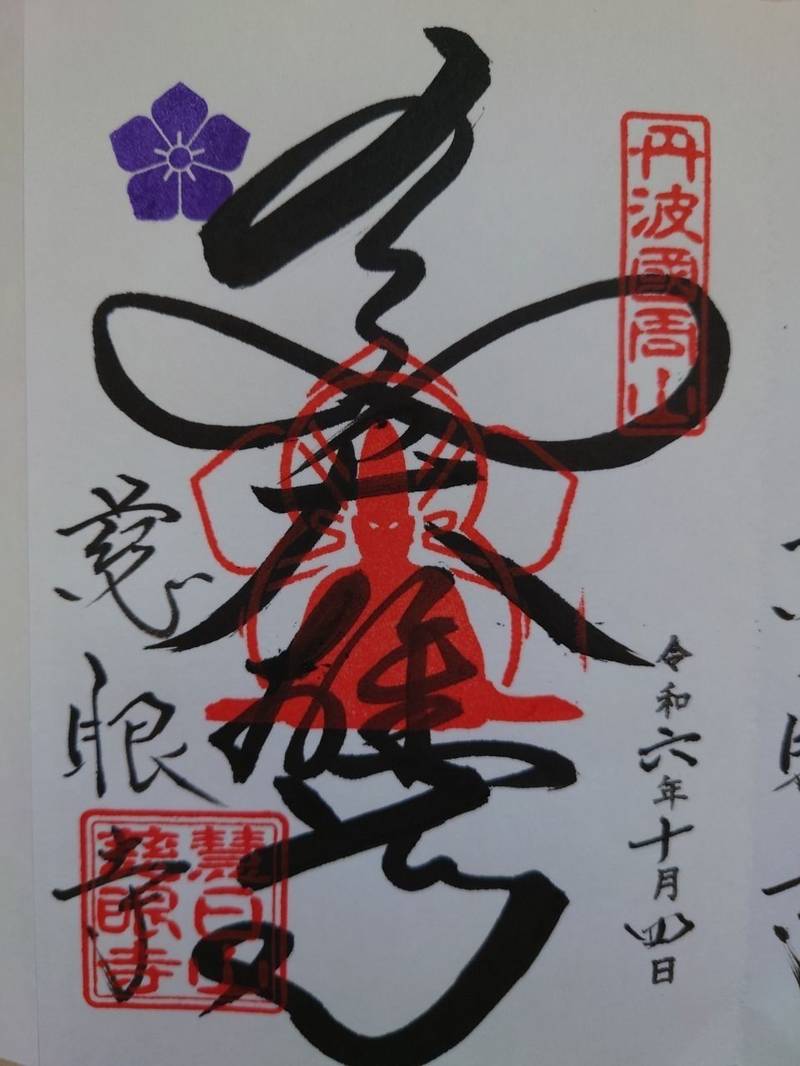 丹波國周山
令和六年十月四日
大雄尊
慈眼寺
慧日山
慈眼寺